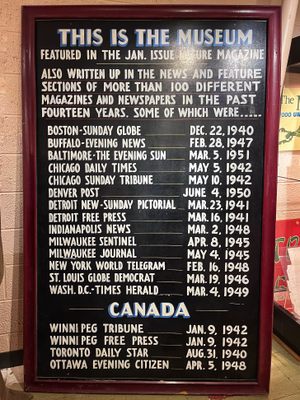 THIS IS THE MUSEUM
FEATURED IN THE JAN. ISSUE LURE MAGAZINE
ALSO WRITTEN UP IN THE NEWS AND FEATURE
SECTIONS OF MORE THAN 100 DIFFERENT
MAGAZINES AND NEWSPAPERS IN THE PAST
FOURTEEN YEARS. SOME OF WHICH WERE.....
BOSTON-SUNDAY GLOBE DEC. 22, 1940
BUFFALO-EVENING NEWS FEB. 28, 1947
BALTIMORE-THE EVENING SUN MAR. 5, 1951
CHICAGO DAILY TIMES MAY 5, 1942
CHICAGO SUNDAY TRIBUNE MAY 10, 1942
DENVER POST JUNE 4, 1950
DETROIT NEW-SUNDAY PICTORIAL MAR. 23, 1941
DETROIT FREE PRESS MAR. 16, 1941
INDIANAPOLIS NEWS MAR. 2, 1948
MILWAUKEE SENTINEL APR. 8, 1945
MILWAUKEE JOURNAL MAY 4, 1945
NEW YORK WORLD TELEGRAM FEB. 16, 1948
ST. LOUIS GLOBE DEMOCRAT MAR. 19, 1946
WASH. D.C.-TIMES HERALD MAR. 4, 1949
CANADA
WINNIPEG TRIBUNE JAN. 9, 1942
WINNIPEG FREE PRESS JAN. 9, 1942
TORONTO DAILY STAR AUG. 31, 1940
OTTAWA EVENING CITIZEN APR. 5, 1948